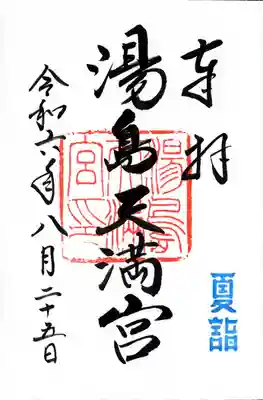 奉拝
湯島天満宮
令和六年八月二十五日
夏詣